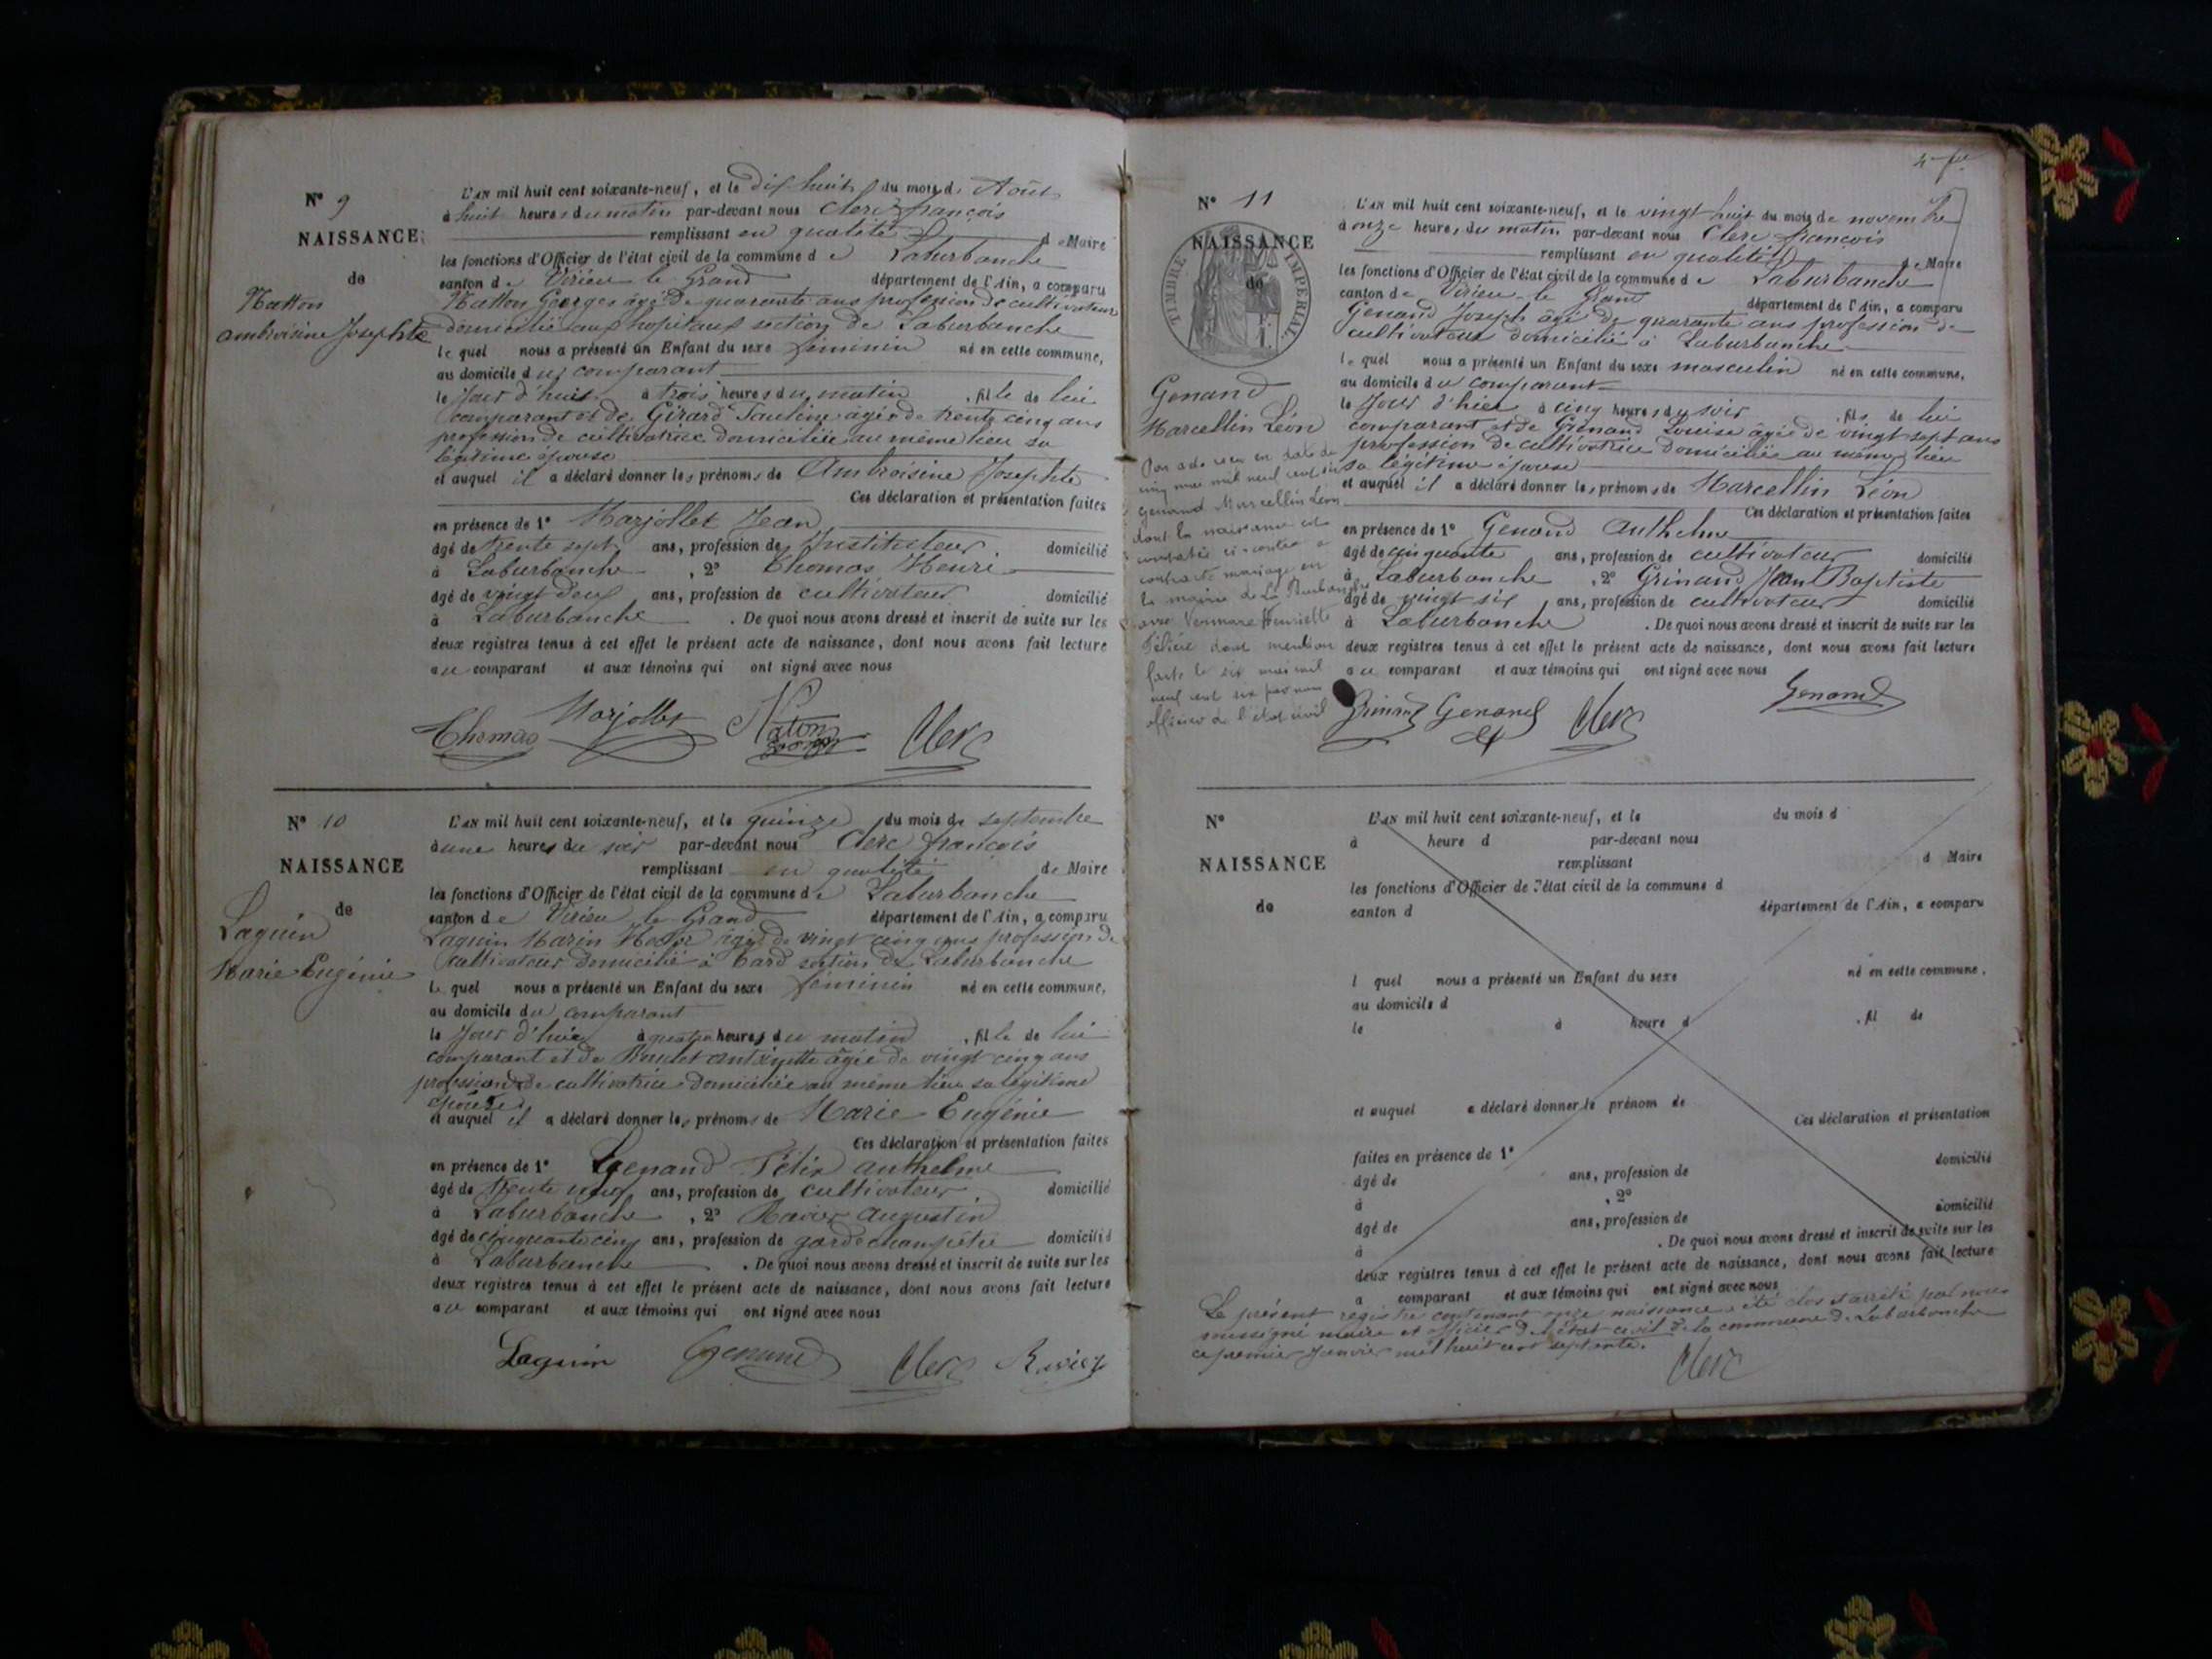 N° 9
NAISSANCE
de
Hatton
Ambroisine Josephte
L'AN mil huit cent soixante-neuf, et le dix huit du mois d Août
à huit heures du matin par-devant nous Clerc françois
remplissant en qualité de Maire
les fonctions d'Officier de l'état civil de la commune de Laburbanche
canton de Virieu le Grand département de l'Ain, a comparu
Hatton Georges âgé de quarante ans profession de cultivateur
domicilié aux hopitaux section de Laburbanche
lequel nous a présenté un Enfant du sexe féminin né en cette commune,
au domicile du comparant
le jour d'hui à trois heures du matin, fille de lui
comparant et de Girard Pauline âgée de trente cinq ans
profession de cultivatrice domiciliée au même lieu sa
légitime épouse
et auquel il a déclaré donner les prénoms de Ambroisine Josephte
Ces déclaration et présentation faites
en présence de 1° Marjollet Jean
âgé de trente sept ans, profession de Instituteur, domicilié
à Laburbanche, 2° Thomas Henri
âgé de vingt deux ans, profession de cultivateur domicilié
à Laburbanche. De quoi nous avons dressé et inscrit de suite sur les
deux registres tenus à cet effet le présent acte de naissance, dont nous avons fait lecture
au comparant et aux témoins qui ont signé avec nous
Thomas Marjollet Haton Georges Clerc
N° 10
NAISSANCE
de
Laguin
Marie Eugénie
L'AN mil huit cent soixante-neuf, et le quinze du mois de septembre
à une heures du soir par-devant nous Clerc françois
remplissant en qualité de Maire
les fonctions d'Officier de l'état civil de la commune de Laburbanche
canton de Virieu le Grand département de l'Ain, a comparu
Laguin Marin âgé de vingt cinq ans profession de
cultivateur domicilié à section de Laburbanche
lequel nous a présenté un Enfant du sexe féminin né en cette commune,
au domicile du comparant
le jour d'hier à quatre heures du matin, fille de lui
comparant et de antoinette âgée de vingt cinq ans
profession de cultivatrice domiciliée au même lieu sa légitime
épouse
et auquel il a déclaré donner les prénoms de Marie Eugénie
Ces déclaration et présentation faites
en présence de 1° Genand Félix anthelme
âgé de trente neuf ans, profession de cultivateur, domicilié
à Laburbanche, 2° augustin
âgé de cinquante cinq ans, profession de garde champêtre domicilié
à Laburbanche. De quoi nous avons dressé et inscrit de suite sur les
deux registres tenus à cet effet le présent acte de naissance, dont nous avons fait lecture
au comparant et aux témoins qui ont signé avec nous
Laguin Genand Clerc
N° 11
TIMBRE IMPERIAL
NAISSANCE
de
Genand
Marcellin Léon
Par acte reçu en date du
cinq mai mil neuf cent six
genand Marcellin Léon
dont la naissance est
constatée ci-contre a
contracté mariage en
la mairie de La Burbanche
avec Henriette
dont mention
faite le six mai mil
neuf cent six par nous
officier de l'état civil
L'AN mil huit cent soixante-neuf, et le vingt huit du mois de novembre
à onze heures du matin par-devant nous Clerc françois
remplissant en qualité de Maire
les fonctions d'Officier de l'état civil de la commune de Laburbanche
canton de Virieu le Grand département de l'Ain, a comparu
Genand Joseph âgé de quarante ans profession de
cultivateur domicilié à Laburbanche
lequel nous a présenté un Enfant du sexe masculin né en cette commune,
au domicile du comparant
le jour d'hier à cinq heures du soir, fils de lui
comparant et de Louise âgée de vingt sept ans
profession de cultivatrice domiciliée au même lieu
sa légitime épouse
et auquel il a déclaré donner les prénoms de Marcellin Léon
Ces déclaration et présentation faites
en présence de 1° Genand Anthelme
âgé de cinquante ans, profession de cultivateur domicilié
à Laburbanche, 2° Grinand Jean Baptiste
âgé de vingt six ans, profession de cultivateur domicilié
à Laburbanche. De quoi nous avons dressé et inscrit de suite sur les
deux registres tenus à cet effet le présent acte de naissance, dont nous avons fait lecture
au comparant et aux témoins qui ont signé avec nous
Genand
Grinand Genand Clerc
N°
NAISSANCE
de
L'AN mil huit cent soixante-neuf, et le du mois d
à heure d par-devant nous
remplissant d Maire
les fonctions d'Officier de l'état civil de la commune d
canton d département de l'Ain, a comparu
l quel nous a présenté un Enfant du sexe né en cette commune,
au domicile d
le à heure d, fil de
et auquel a déclaré donner le prénom de
Ces déclaration et présentation
faites en présence de 1°
âgé de ans, profession de domicilié
à, 2°
âgé de ans, profession de domicilié
à. De quoi nous avons dressé et inscrit de suite sur les
deux registres tenus à cet effet le présent acte de naissance, dont nous avons fait lecture
a comparant et aux témoins qui ont signé avec nous
Le présent registre contenant onze naissance a été clos et arrêté par nous
soussigné maire et officier de l'état civil de la commune de Laburbanche
ce premier Janvier mil huit cent septante.
Clerc